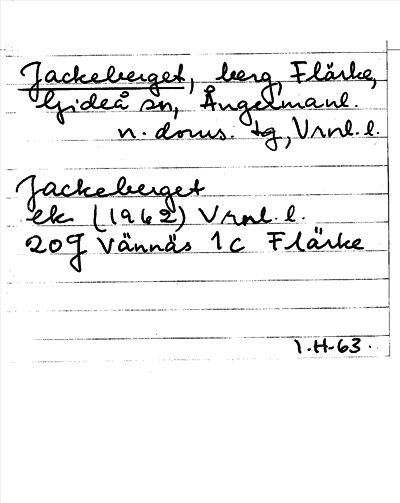 Jackeberget, berg, Flärke,
Gideå sn, Ångermanl.
n. doms. tg, Vrnl. l.
Jackeberget
ek (1962) Vrnl. l.
20J Vännäs 1c Flärke
I.H-63.